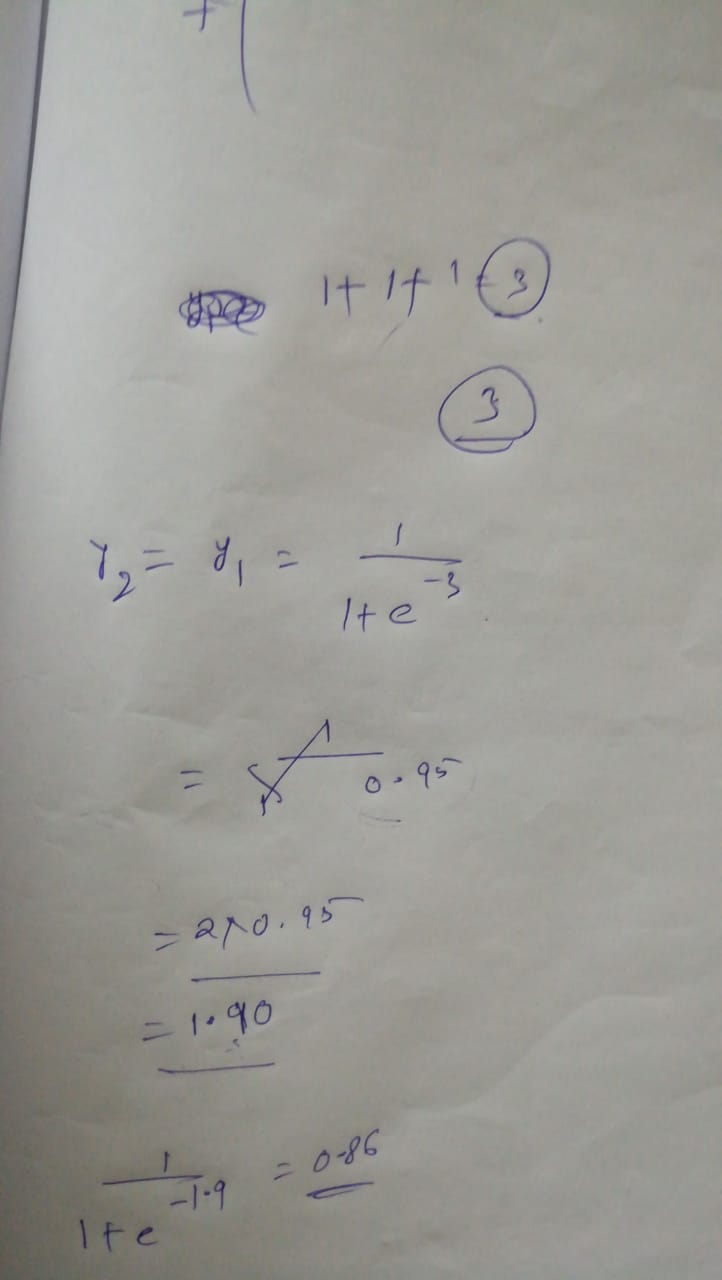 +
1+1+1=3
3
Y₂ = y₁ = 1/(1+e⁻³)
= 0.95
= 2×0.95
= 1.90
1/(1+e⁻¹·⁹) = 0.86